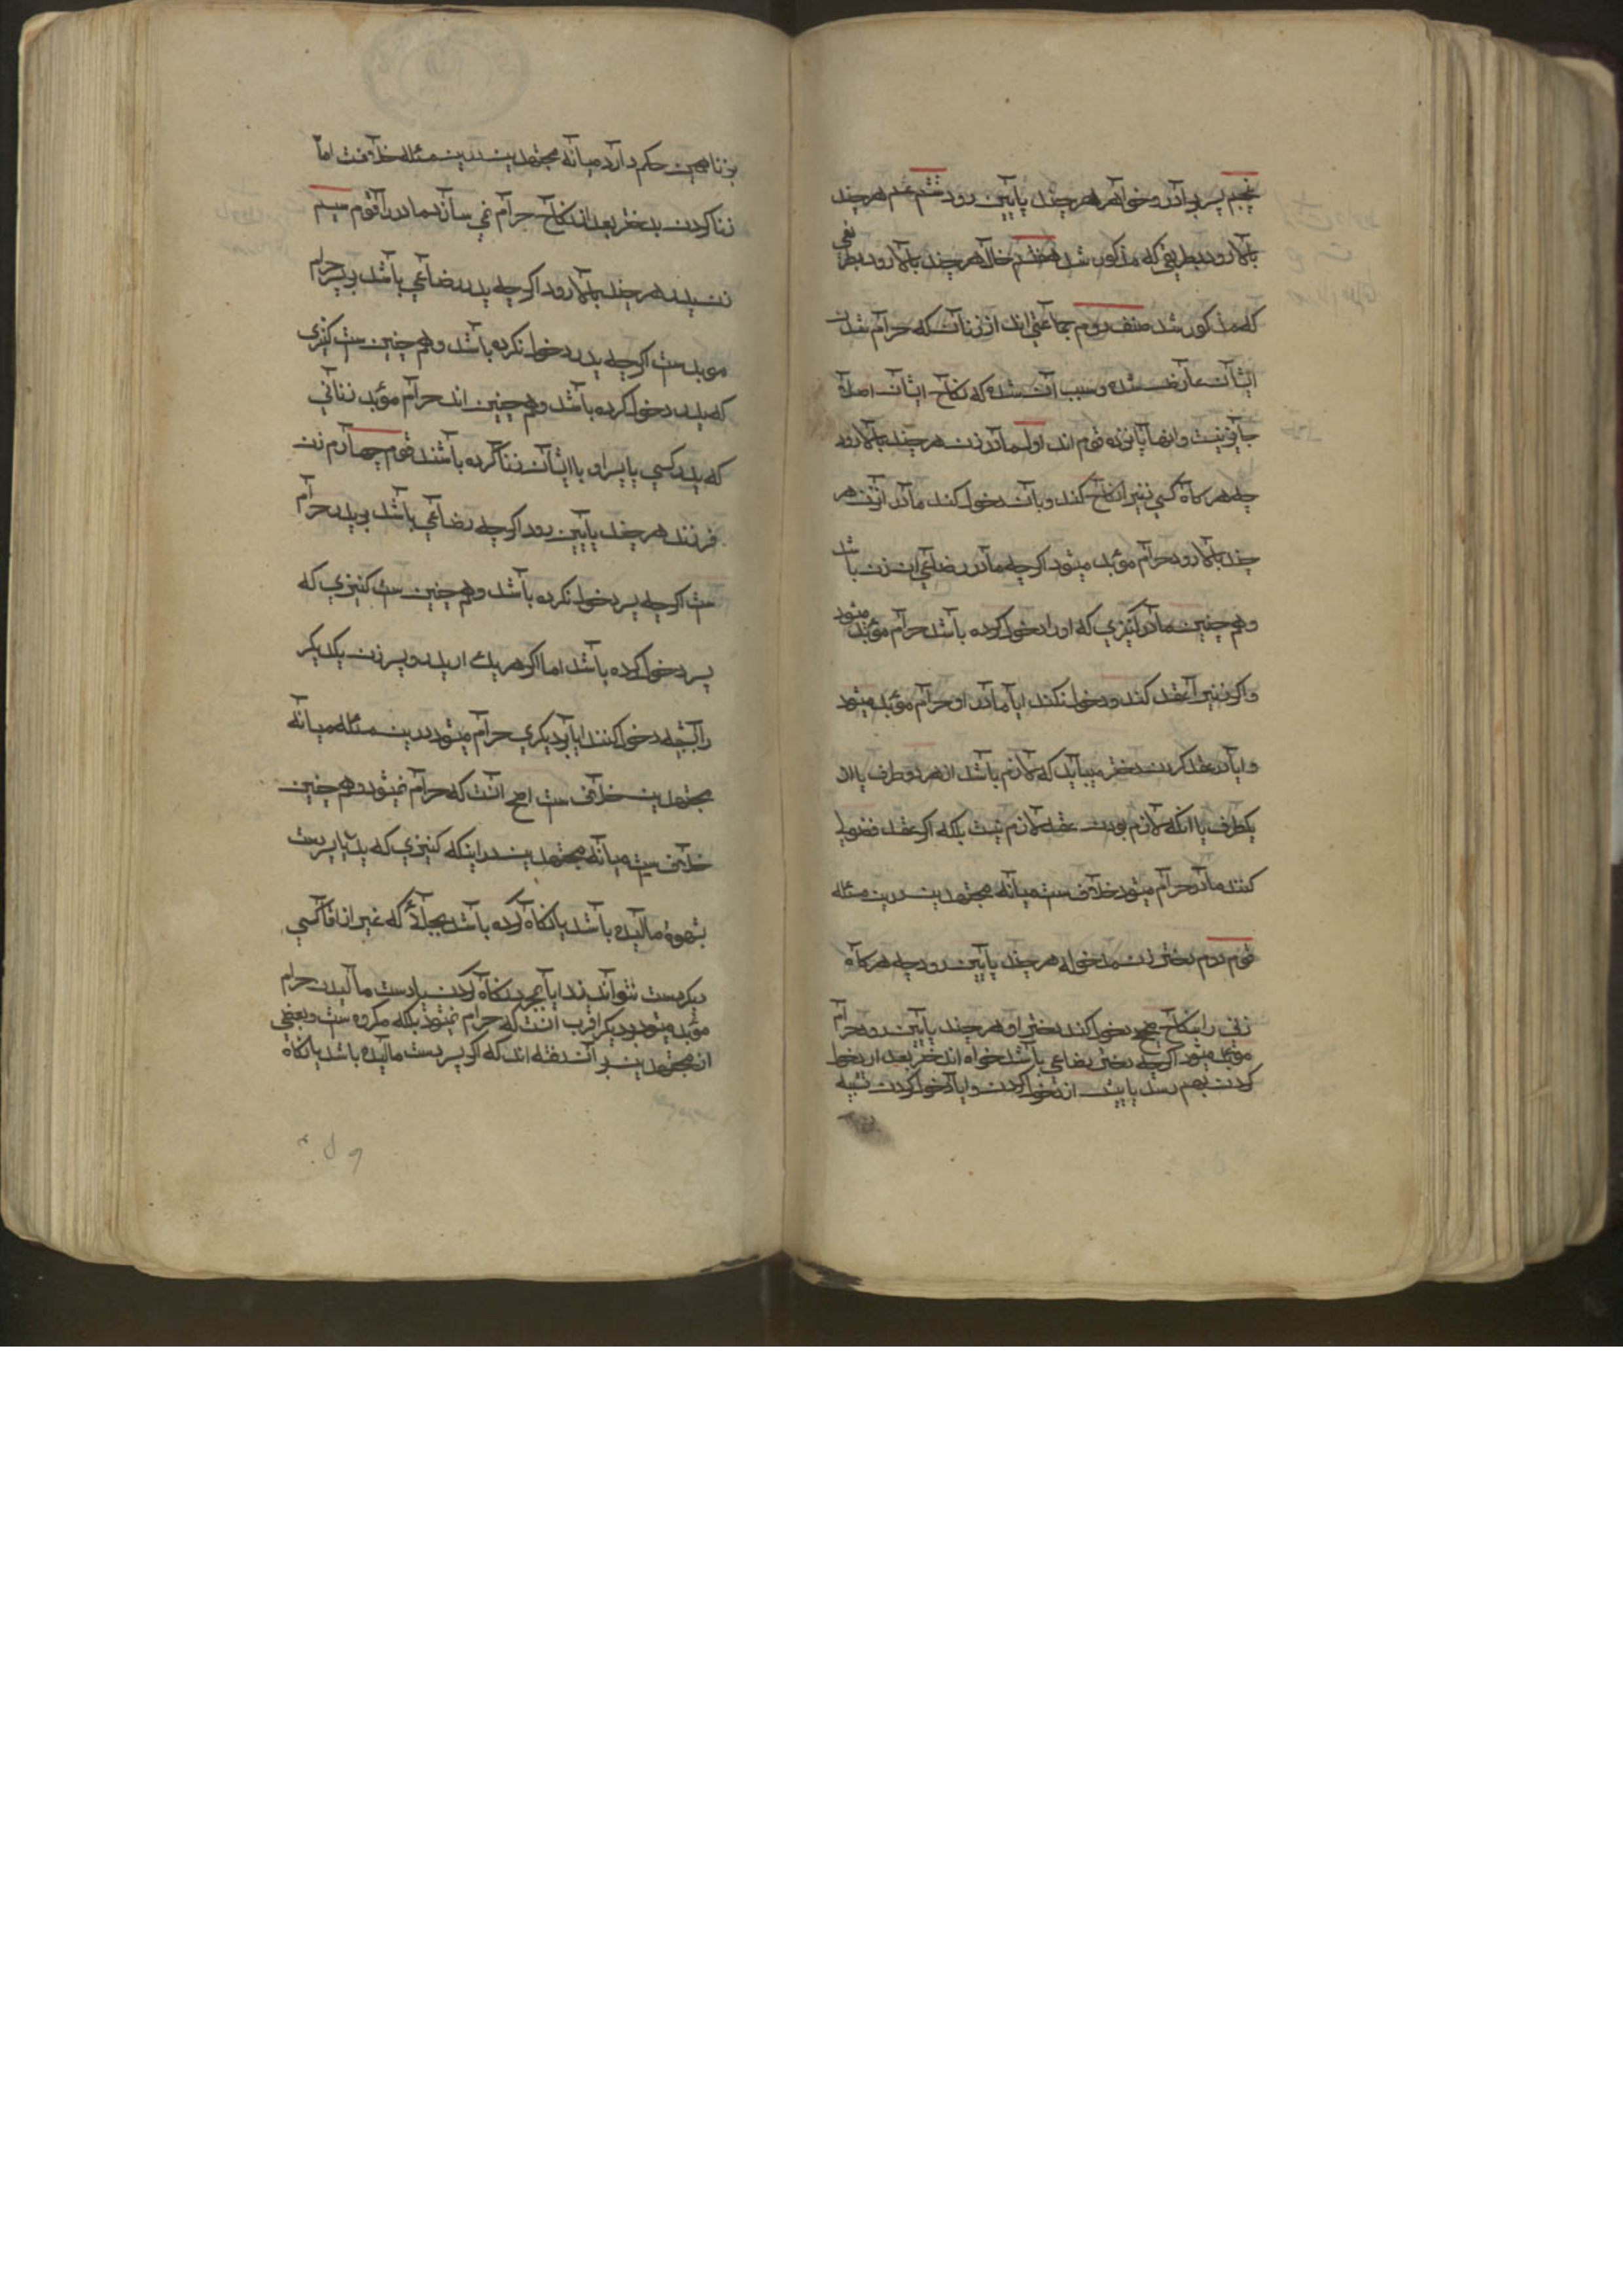 پنجم پسر برادر و خواهر هر چند پایین رود ششم عم هر چند
بالا رود بطریقی که مذکور شد هفتم خال هر چند بالا رود بطریقی
که مذکور شد صنف دوم جماعتی اند از زنان که حرام شدن
ایشان عارض شده و سبب آن شده که نکاح ایشان اصلا
جایز نیست و اینها پانزده قوم اند اول مادر زن هر چند بالا رود
چه هر کاه کسی زنیرا نکاح کند و بان دخول کند مادر انزن هر
چند بالا رود حرام مؤبد میشود اکرچه مادر رضاعی ان زن باشد
و هم چنین مادر کنیزی که اورا دخول کرده باشد حرام مؤبد میشود
و اکر زنیرا عقد کند و دخول نکند ایا مادر او حرام مؤبد میشود
و ایا در عقد کردن دختر میباید که لازم باشد از هر دو طرف یا از
یکطرف یا انکه لازم بودن عقد لازم نیست بلکه اکر عقد فضولی
کنند مادر حرام میشود خلاف ست میانه مجتهدین درین مسئله
قوم دوم دختر زن مدخوله هر چند پایین رود چه هر کاه
زنی را بنکاح صحیح دخول کند دختر او هر چند پایین رود حرام
مؤبد میشود اکرچه دختر رضاعی باشد خواه اندختر بعد از دخول
کردن بهم رسد یا پیش از دخول کردن و ایا دخول کردن شبیه
بزنا همین حکم دارد میانه مجتهدین درین مسئله خلافست اما
زنا کردن بدختر بعد از نکاح حرام نمی سازد مادر را قوم سیم
زن پدر هر چند بالا رود اکرچه پدر رضاعی باشد بر پسر حرام
موبد ست اکرچه پدر دخول نکرده باشد و هم چنین ست کنیزی
که پدر دخول کرده باشد و هم چنین اند حرام مؤبد زنانی
که پدر کسی یا پسر او با ایشان زنا کرده باشند قوم چهارم زن
فرزند هر چند پایین رود اکرچه رضاعی باشد بر پدر حرام
ست اکرچه پسر دخول نکرده باشد و هم چنین ست کنیزی که
پسر دخول کرده باشد اما اکر هر یک از پدر و پسر زن یکدیکر
را بشبهه دخول کنند ایا بر دیکری حرام میشود درین مسئله میانه
مجتهدین خلاف ست اصح انست که حرام نمیشود و هم چنین
خلاف ست میانه مجتهدین در اینکه کنیزی که پدر یا پسر دست
بشهوة مالیده باشد یا نکاه کرده باشد بجائی که غیر از اقا کسی
دیکر دست نتواند زد ایا بمجرد نکاه کردن یا دست مالیدن حرام
مؤبد میشود بر دیکر اقرب انست که حرام نمیشود بلکه مکروه ست و بعضی
از مجتهدین بر آن رفته اند که اکر پسر دست مالیده باشد یا نکاه